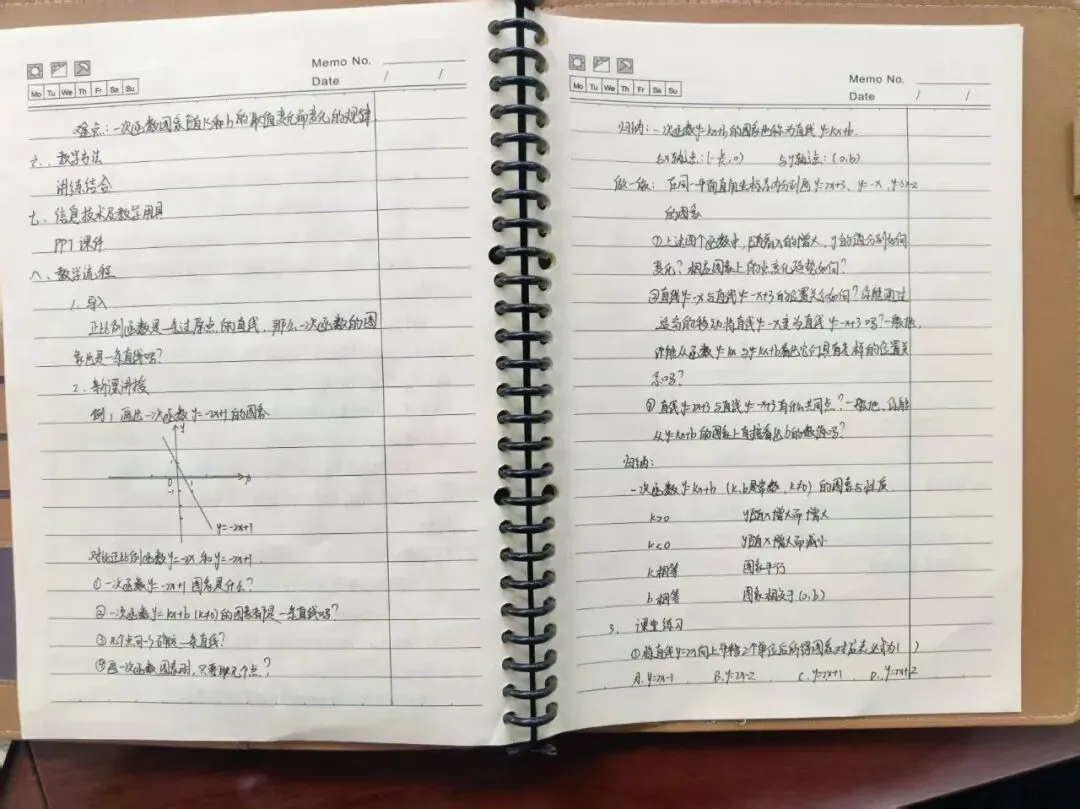 Memo No.
Date / /
Mo Tu We Th Fr Sa Su
难点：一次函数图象随k和b的取值变化而变化的规律
六、教学方法
讲练结合
七、信息技术及教学用具
PPT 课件
八、教学流程
1. 导入
正比例函数是一条过原点的直线，那么一次函数的图
象也是一条直线吗？
2. 新课讲授
例1 画出一次函数y=-2x+1的图象
y
1
0 1 x
-1
y=-2x+1
对比正比例函数y=-2x 和 y=-2x+1.
① 一次函数y=-2x+1 图象是什么？
② 一次函数y=kx+b (k≠0)的图象都是一条直线吗？
③ 几个点可以确定一条直线？
④ 画一次函数图象时，只要取几个点？
Memo No.
Date / /
Mo Tu We Th Fr Sa Su
归纳：一次函数y=kx+b的图象也称为直线 y=kx+b.
与x轴交点：(-b/k, 0) 与y轴交点：(0, b)
做一做：在同一平面直角坐标系内分别画y=2x+3、y=-x、y=5x-2
的图象
①上述四个函数中，随着x的增大，y的值分别如何
变化？相应图象上的点变化趋势如何？
②直线y=-x与直线y=-x+3的位置关系如何？你能通过
适当的移动将直线y=-x变为直线y=-x+3吗？一般地，
你能从函数y=kx与y=kx+b看出它们具有怎样的位置关
系吗？
③ 直线y=2x+3与直线y=-x+3有什么共同点？一般地，你能
从y=kx+b的图象上直接看出b的数值吗？
归纳：
一次函数y=kx+b (k,b是常数，k≠0) 的图象与性质
k>0 y随x增大而增大
k<0 y随x增大而减小
k相等 图象平行
b相等 图象相交于(0,b)
3. 课堂练习
①将直线y=2x向上平移2个单位后所得图象对应表达式为( )
A. y=2x-1 B. y=2x-2 C. y=2x+1 D. y=2x+2